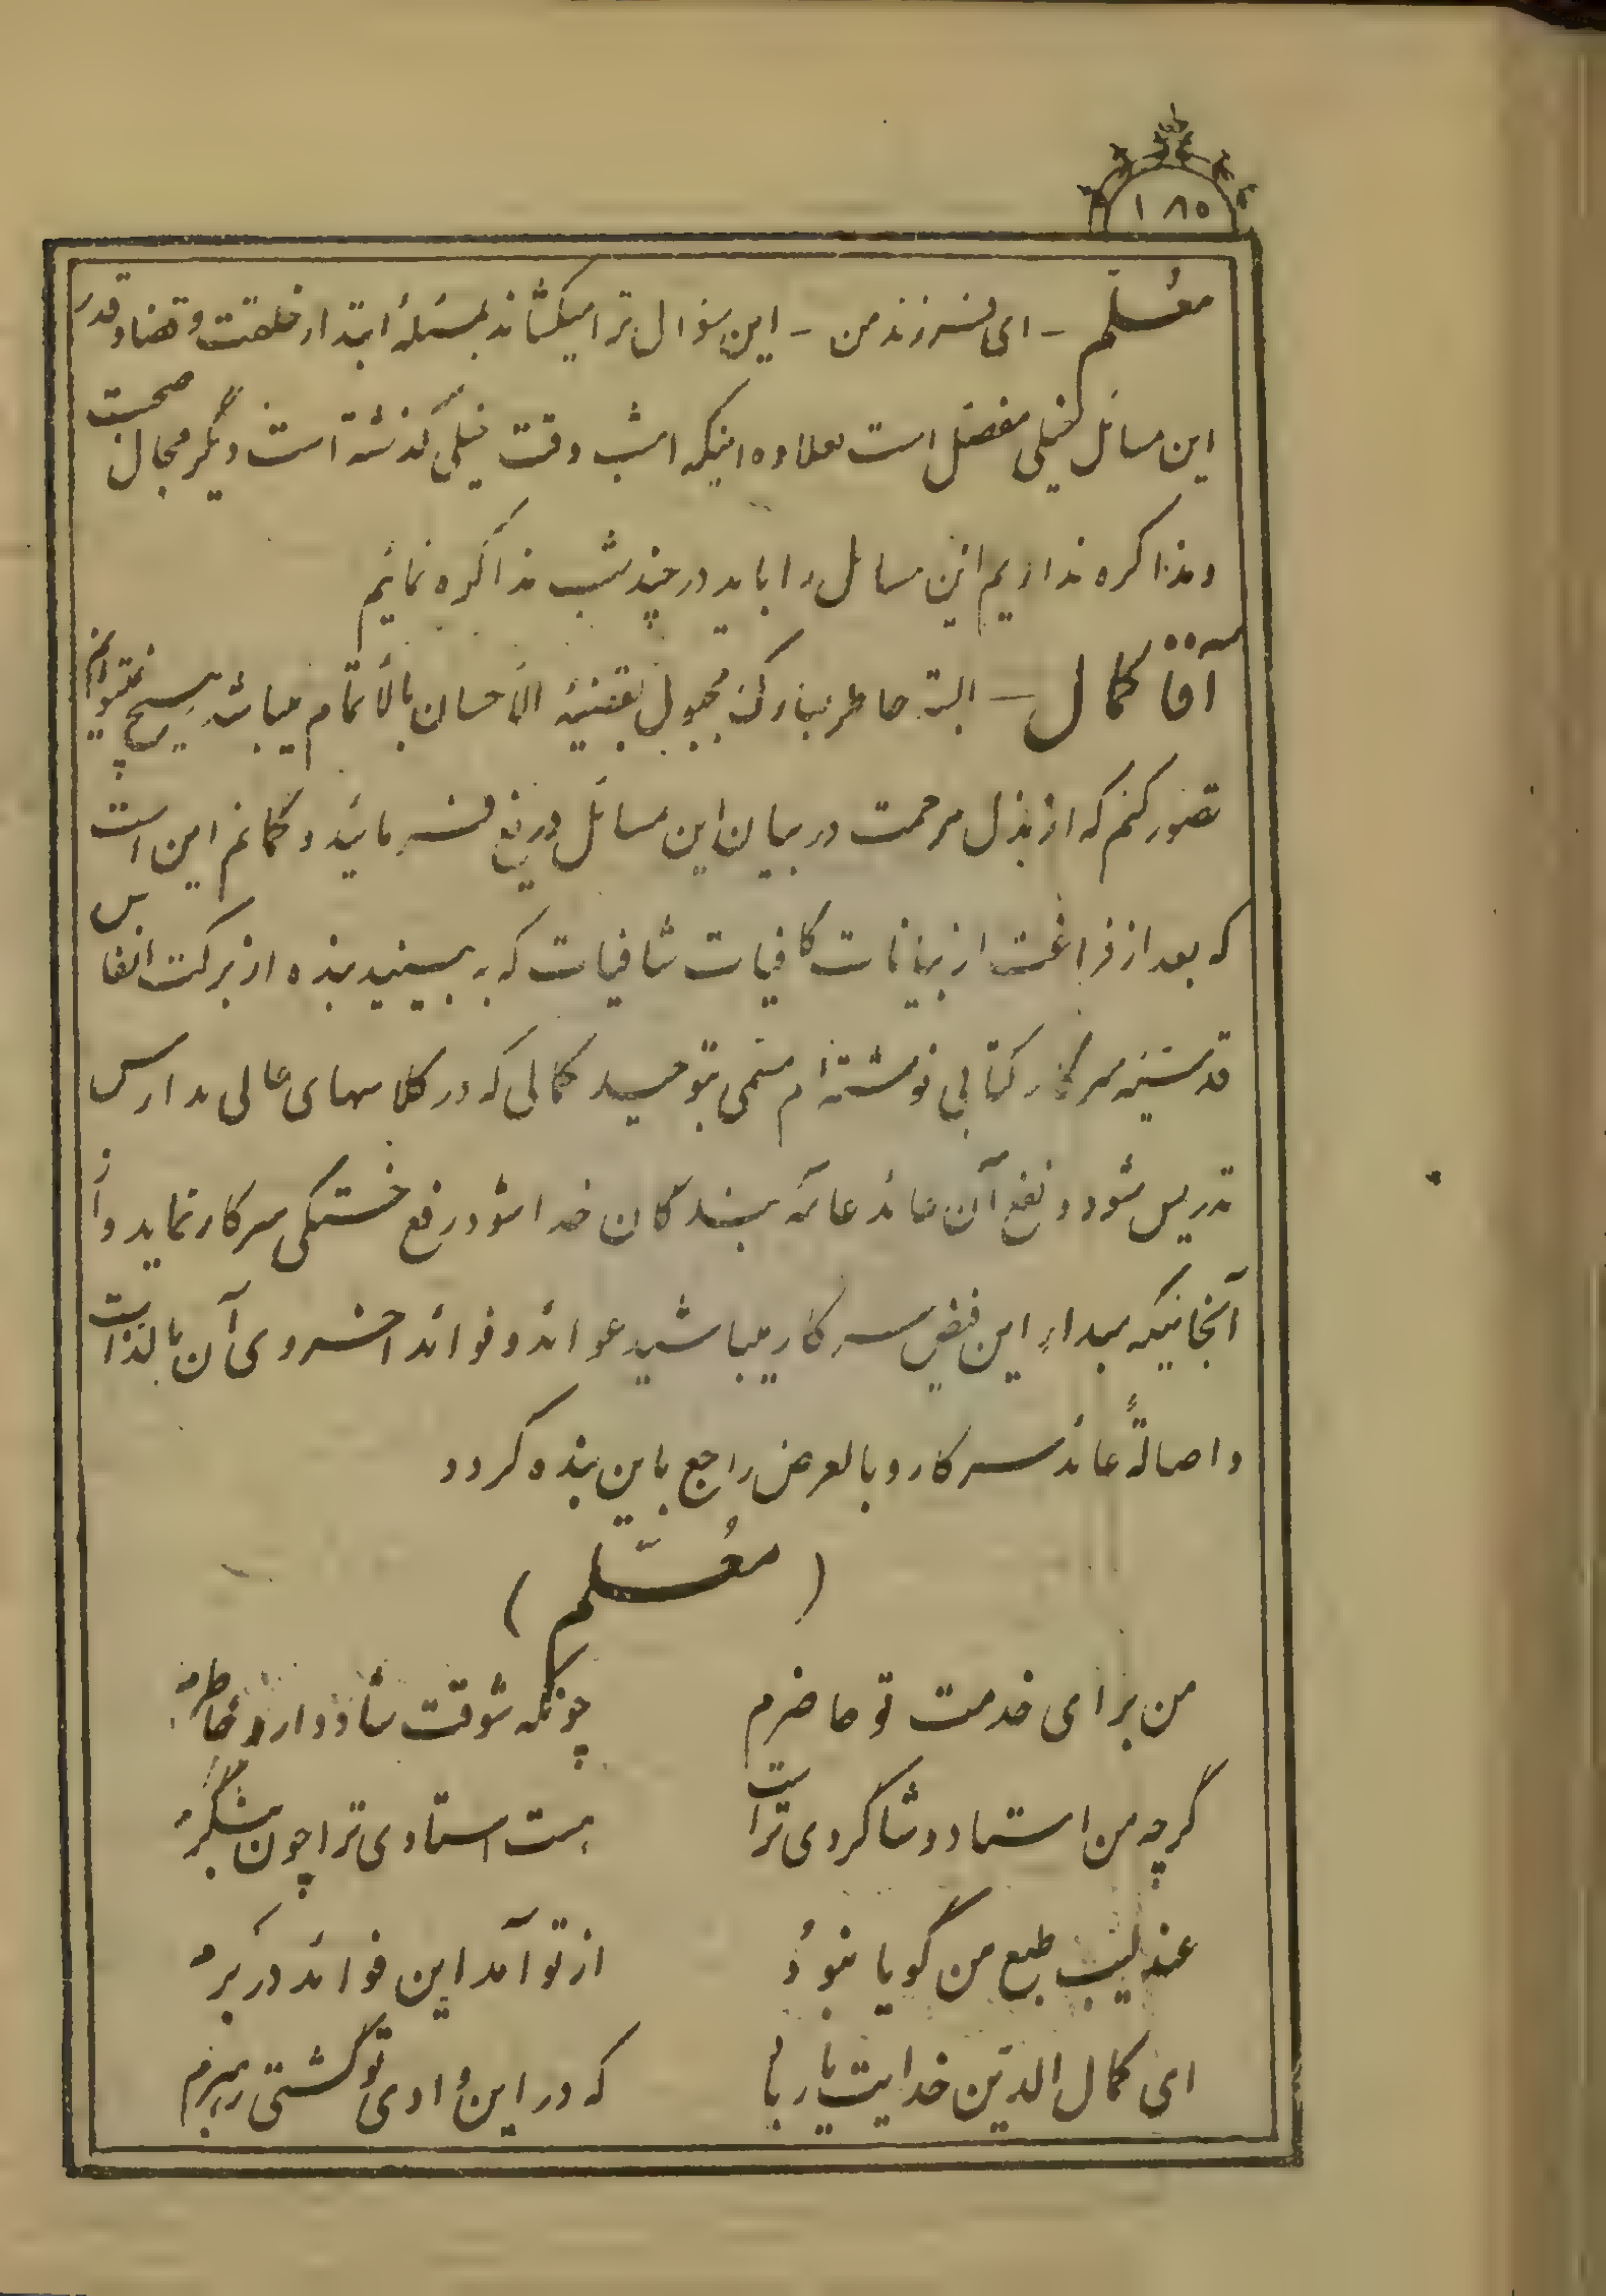 ۱۸۵
معلّم – ای فرزند من – این سؤال ترا میکشاند بمسئلهٔ ابتداء خلقت و قضا و قدر
این مسائل خیلی مفصّل است بعلاوه اینکه امشب وقت خیلی گذشته است دیگر مجال صحبت
و مذاکره نداریم این مسائل را باید در چند شب مذاکره نمائیم
آقا کمال – البته خاطر مبارک که مجبول بقضیّهٔ الأحسان بالأتمام میباشد هیچ نمیتوانم
تصور کنم که از بذل مرحمت در بیان این مسائل دریغ فرمائید و گمانم این است
که بعد از فراغت از بیانات کافیات شافیات که به بینید بنده از برکت انفاس
قدسیّه سرکار کتابی نوشته‌ام مسمّی بتوحید کمالی که در کلاسهای عالی مدارس
تدریس شود و نفع آن عائد عامّه بندگان خدا شود رفع خستگی سرکار نماید و از
آنجائیکه مبداء این فیض سرکار میباشید عوائد و فوائد اخروی آن بالذات
و اصالةً عائد سرکار و بالعرض راجع باین بنده گردد
(معُلّم)
من برای خدمت تو حاضرم چونکه شوقت شاد دارد خاطرم
گرچه من استاد و شاگردی تراست هست استادی ترا چون بنگرم
عندلیب طبع من گویا نبوُد از تو آمد این فوائد در برم
ای کمال الدّین خدایت یار باد که در این وادی تو گشتی رهبرم